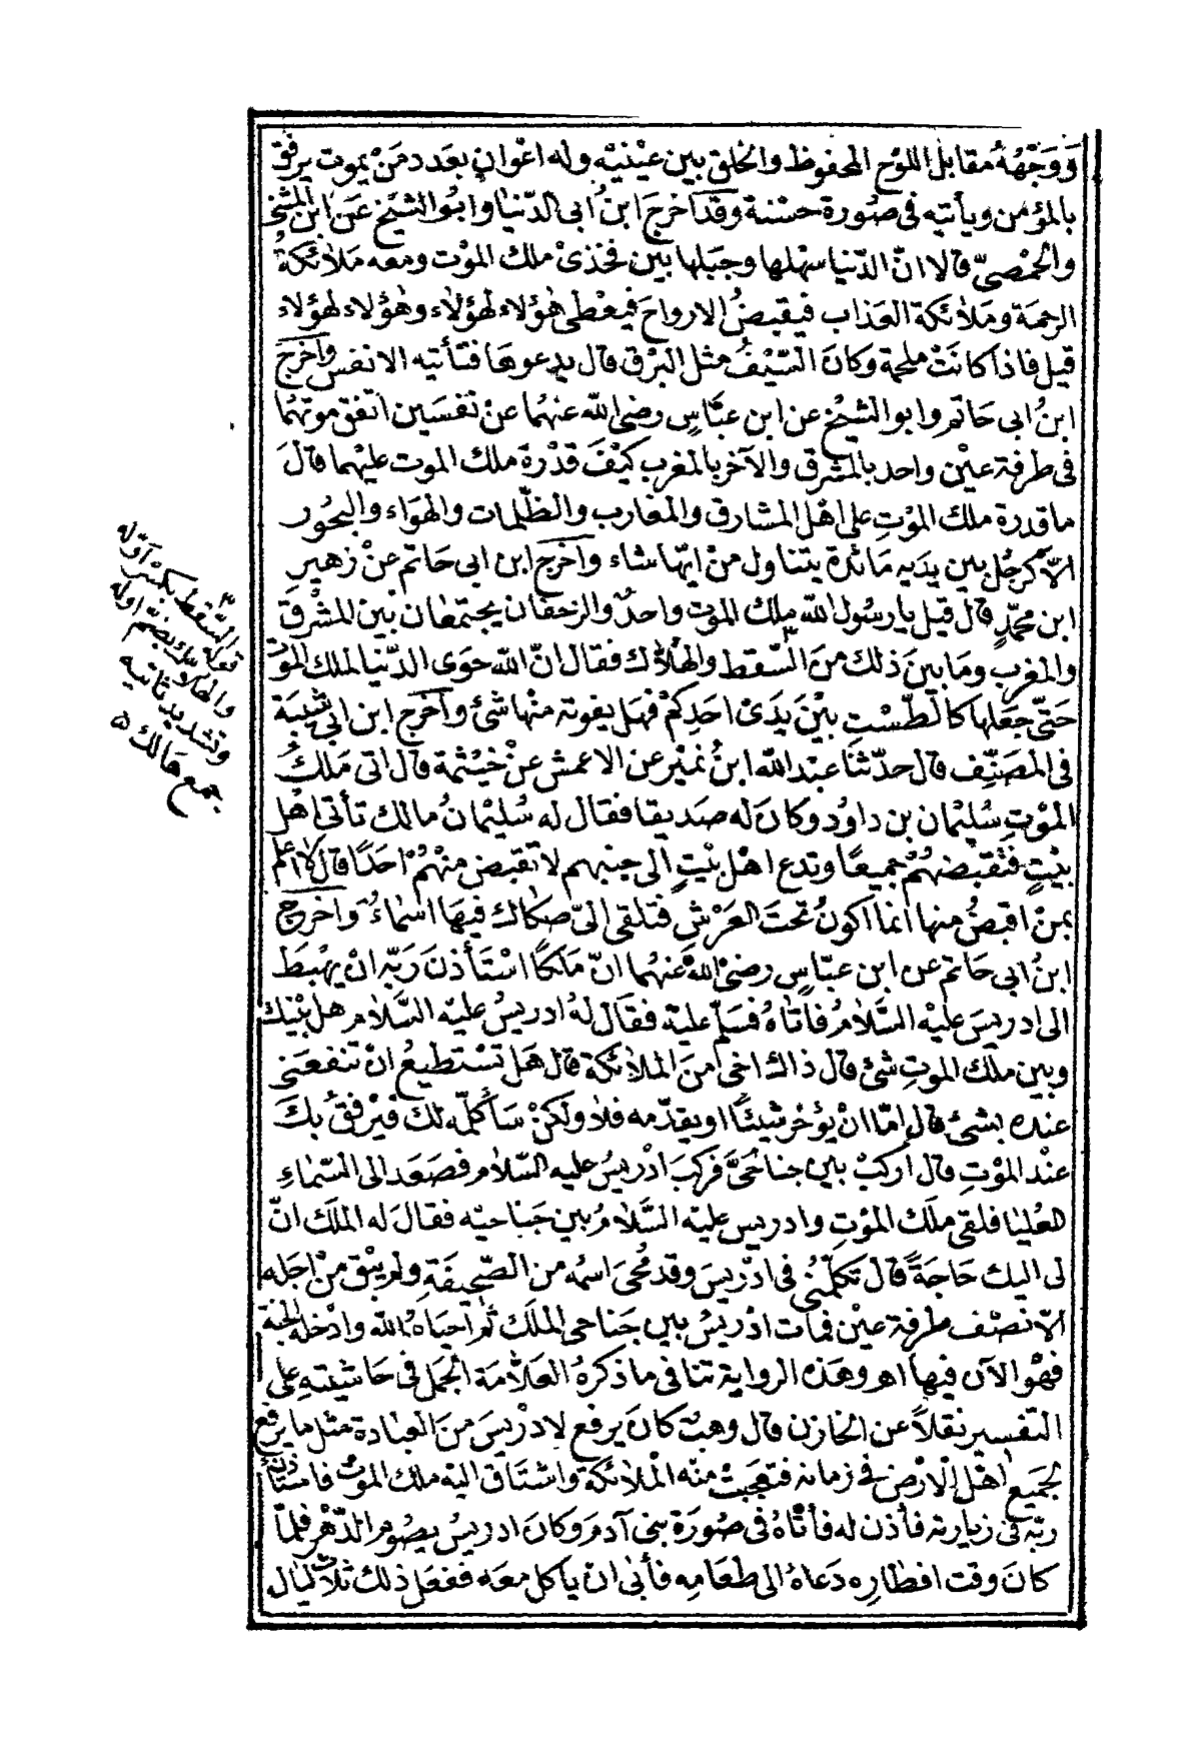 وَوَجْهُهُ مقابل اللوح المحفوظ والخلق بين عينيه وله اعوان بعدد من يموت يرفق
بالمؤمن ويأتيه فى صورة حسنة وقد اخرج ابن ابى الدّنيا وابو الشيخ عن ابن المثنى
والحمصىّ قالا انّ الدّنيا سهلها وجبلها بين فخذى ملك الموت ومعه ملائكة
الرحمة وملائكة العذاب فيقبض الارواح فيعطى هؤلاء لهؤلاء وهؤلاء لهؤلاء
قيل فاذا كانت ملحمة وكان السّيف مثل البرق قال يدعوها فتأتيه الانفس واخرج
ابن ابى حاتم وابو الشيخ عن ابن عبّاس رضى الله عنهما عن نفسين اتفق موتهما
فى طرفة عين واحد بالمشرق والآخر بالمغرب كيف قدرة ملك الموت عليهما قال
ما قدرة ملك الموت على اهل المشارق والمغارب والظّلمات والهواء والبحور
الّا كرجل بين يديه مائدة يتناول من ايّها شاء واخرج ابن ابى حاتم عن زهير
ابن محمّد قال قيل يا رسول الله ملك الموت واحدٌ والزحفان يجتمعان بين المشرق
والمغرب وما بين ذلك من السّقط والهلّاك فقال انّ الله حوى الدّنيا لملك الموت
حتّى جعلها كالطّست بين يدى احدكم فهل يفوته منها شئ واخرج ابن ابى شيبة
فى المصنّف قال حدّثنا عبد الله ابن نمير عن الاعمش عن خيثمة قال اتى ملك
الموت سليمان بن داود وكان له صديقا فقال له سليمان مالك تأتى اهل
بيت فتقبضهم جميعًا وتدع اهل بيت الى جنبهم لا تقبض منهم احدًا قال لا اعلم
بمن اقبض منها انما اكون تحت العرش فتلقى الىّ صكاك فيها اسماء واخرج
ابن ابى حاتم عن ابن عبّاس رضى الله عنهما انّ ملكًا استأذن ربّه ان يهبط
الى ادريس عليه السّلام فاتاه فسلم عليه فقال له ادريس عليه السّلام هل بينك
وبين ملك الموت شئ قال ذاك اخى من الملائكة قال هل تستطيع ان تنفعنى
عنده بشئ قال امّا ان يؤخر شيئًا او يقدّمه فلا ولكن سأكلّمه لك فيرفق بك
عند الموت قال اركب بين جناحىّ فركب ادريس عليه السّلام فصعد الى السّماء
العليا فلقى ملك الموت وادريس عليه السّلام بين جناحيه فقال له الملك انّ
لى اليك حاجةً قال تكلّمنى فى ادريس وقد محى اسمه من الصّحيفة ولم يبق من اجله
الّا نصف طرفة عين فمات ادريس بين جناحى الملك ثم احياه الله وادخله الجنة
فهو الآن فيها اهـ وهذه الرواية تنافى ما ذكره العلّامة الجمل فى حاشيته على
التفسير نقلًا عن الخازن قال وهب كان يرفع لادريس من العبادة مثل ما يرفع
لجميع اهل الارض فى زمانه فتعجبت منه الملائكة واشتاق اليه ملك الموت فاستأذن
ربّه فى زيارته فأذن له فأتاه فى صورة بنى آدم وكان ادريس يصوم الدّهر فلمّا
كان وقت افطاره دعاه الى طعامه فأبى ان ياكل معه ففعل ذلك ثلاث ليال
٣
قوله السّقط بكسر اوّله
والهلّاك بضم اوله
وتشديد ثانيه
جمع هالك